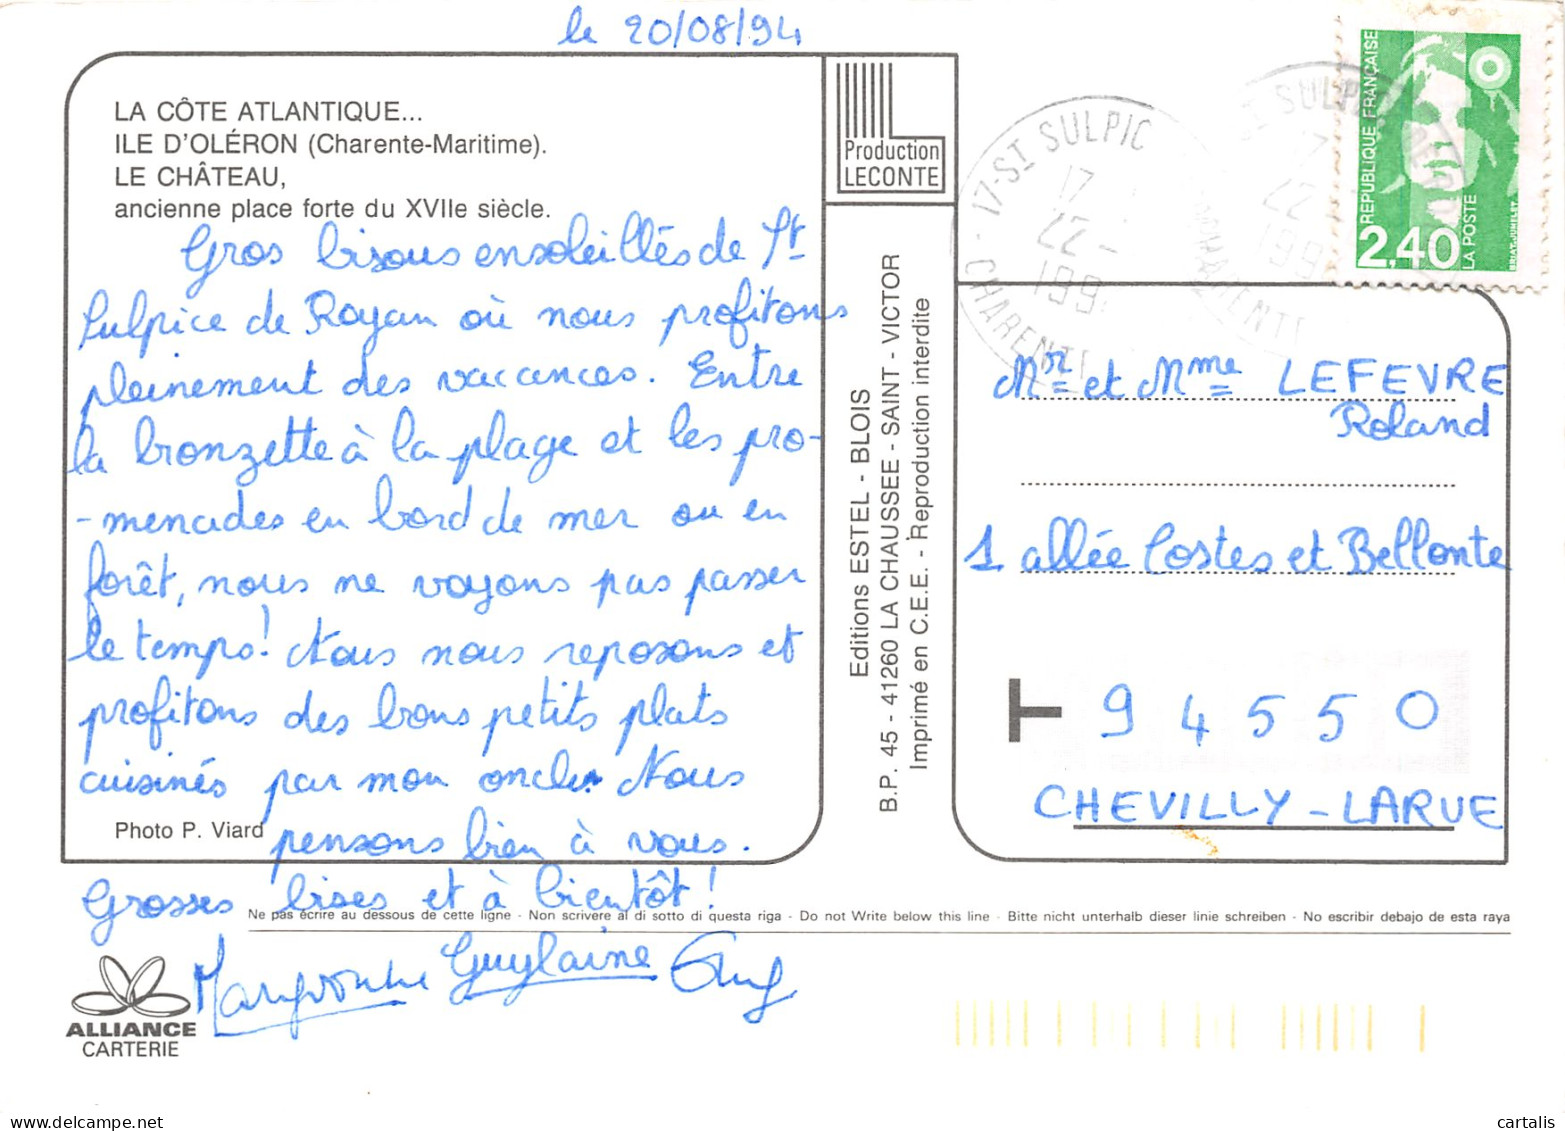 le 20/08/94
LA CÔTE ATLANTIQUE...
ILE D'OLÉRON (Charente-Maritime).
LE CHÂTEAU,
ancienne place forte du XVIIe siècle.
Production
LECONTE
Gros bisous ensoleillés de St
Sulpice de Royan où nous profitons
pleinement des vacances. Entre
la bronzette à la plage et les pro-
-menades en bord de mer ou en
forêt, nous ne voyons pas passer
le temps! Nous nous reposons et
profitons des bons petits plats
cuisinés par mon oncle. Nous
Photo P. Viard
pensons bien à vous.
Grosses bises et à bientôt!
Guylaine
Editions ESTEL - BLOIS
B.P. 45 - 41260 LA CHAUSSEE - SAINT - VICTOR
Imprimé en C.E.E. - Reproduction interdite
17-ST SULPIC
17
22-
199
CHARENTE
ST SULP
17
22
199
CHARENTE
REPUBLIQUE FRANÇAISE
2,40
LA POSTE
BRIAT-JUMELET
Mr et Mme LEFEVRE
Roland
1 allée Costes et Bellonte
T
94550
CHEVILLY-LARUE
Ne pas écrire au dessous de cette ligne - Non scrivere al di sotto di questa riga - Do not Write below this line - Bitte nicht unterhalb dieser linie schreiben - No escribir debajo de esta raya
ALLIANCE
CARTERIE
www.cartalis.com